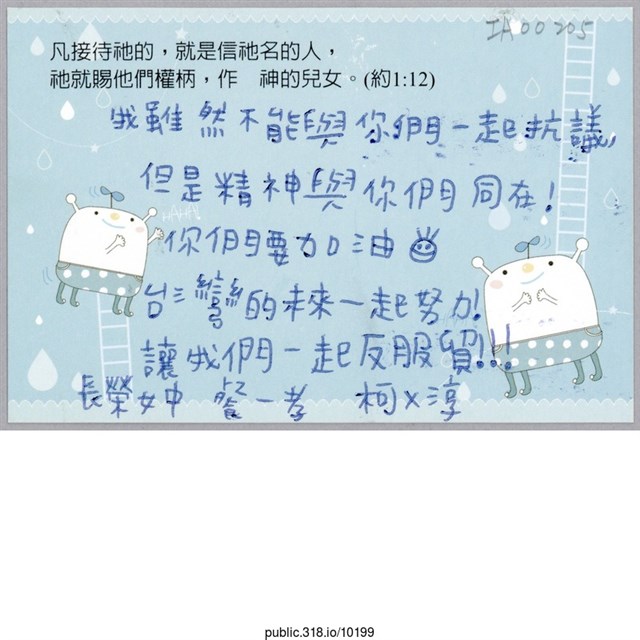 IA00205
凡接待祂的，就是信祂名的人，
祂就賜他們權柄，作　神的兒女。(約1:12)
我雖然不能與你們一起抗議，
但是精神與你們同在！
HAHA
你們要加油
台灣的未來一起努力!
讓我們一起反服貿!!!
長榮女中 一孝 柯×淳
public.318.io/10199